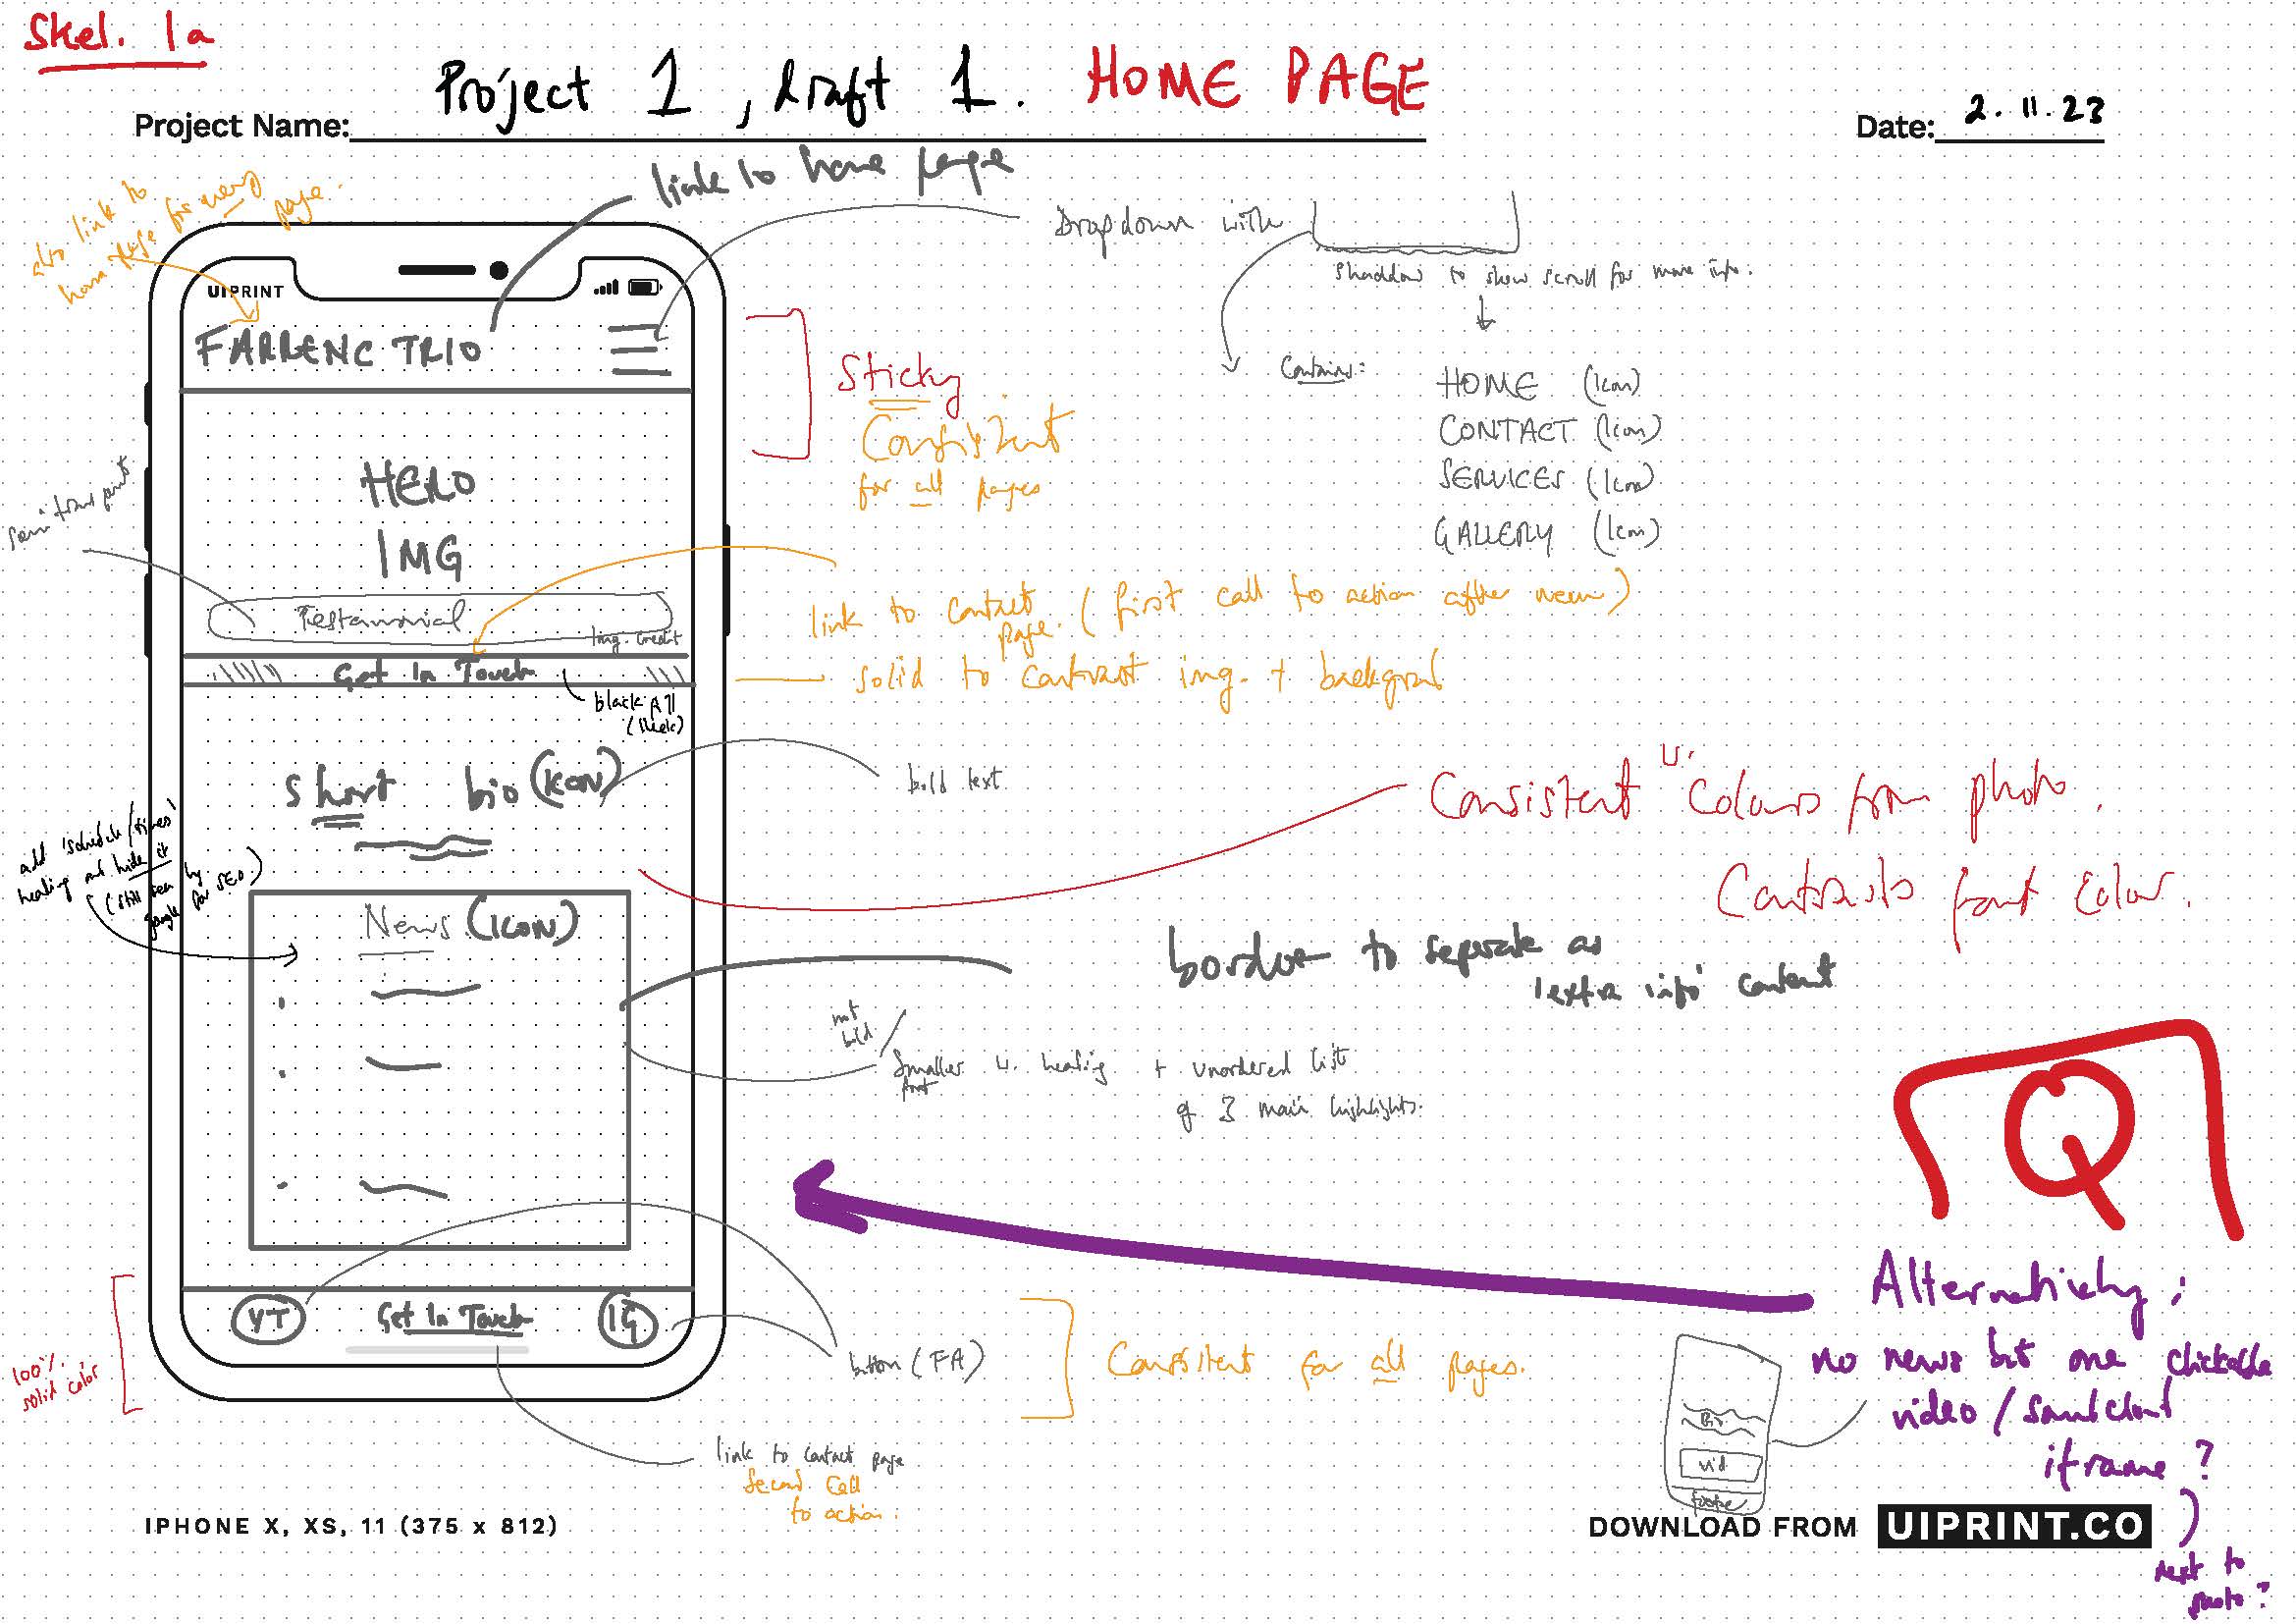 Skel. 1a
Project Name: Project 1, draft 1. HOME PAGE
Date: 2.11.23
also link to
home page for every page.
link to home page
Dropdown with
shaddow to show scroll for more info.
Contains:
HOME (Icon)
CONTACT (Icon)
SERVICES (Icon)
GALLERY (Icon)
UIPRINT
FARRENC TRIO
Sticky
Consistent
for all pages
HERO
IMG
semi transparent
Testamonial
Img. Credit
Get In Touch
link to contact page. (first call to action after menu)
solid to contrast img. + background
black
short bio (ICON)
bold text
Consistent w. Colours from photo.
Contrasts font color.
add 'schedule/times'
heading and hide it
(still seen by
google for SEO)
News (ICON)
border to separate as
'extra info' content
not
bold
Smaller font w. heading + unordered list
of 3 main highlights.
Q
Alternatively:
no news but one clickable
video/soundcloud
iframe?
next to
photo?
Bio
vid
footer
100%
solid color
YT
Get In Touch
IG
button (FA)
Consistent for all pages.
link to contact page
Second Call
to action.
IPHONE X, XS, 11 (375 x 812)
DOWNLOAD FROM UIPRINT.CO